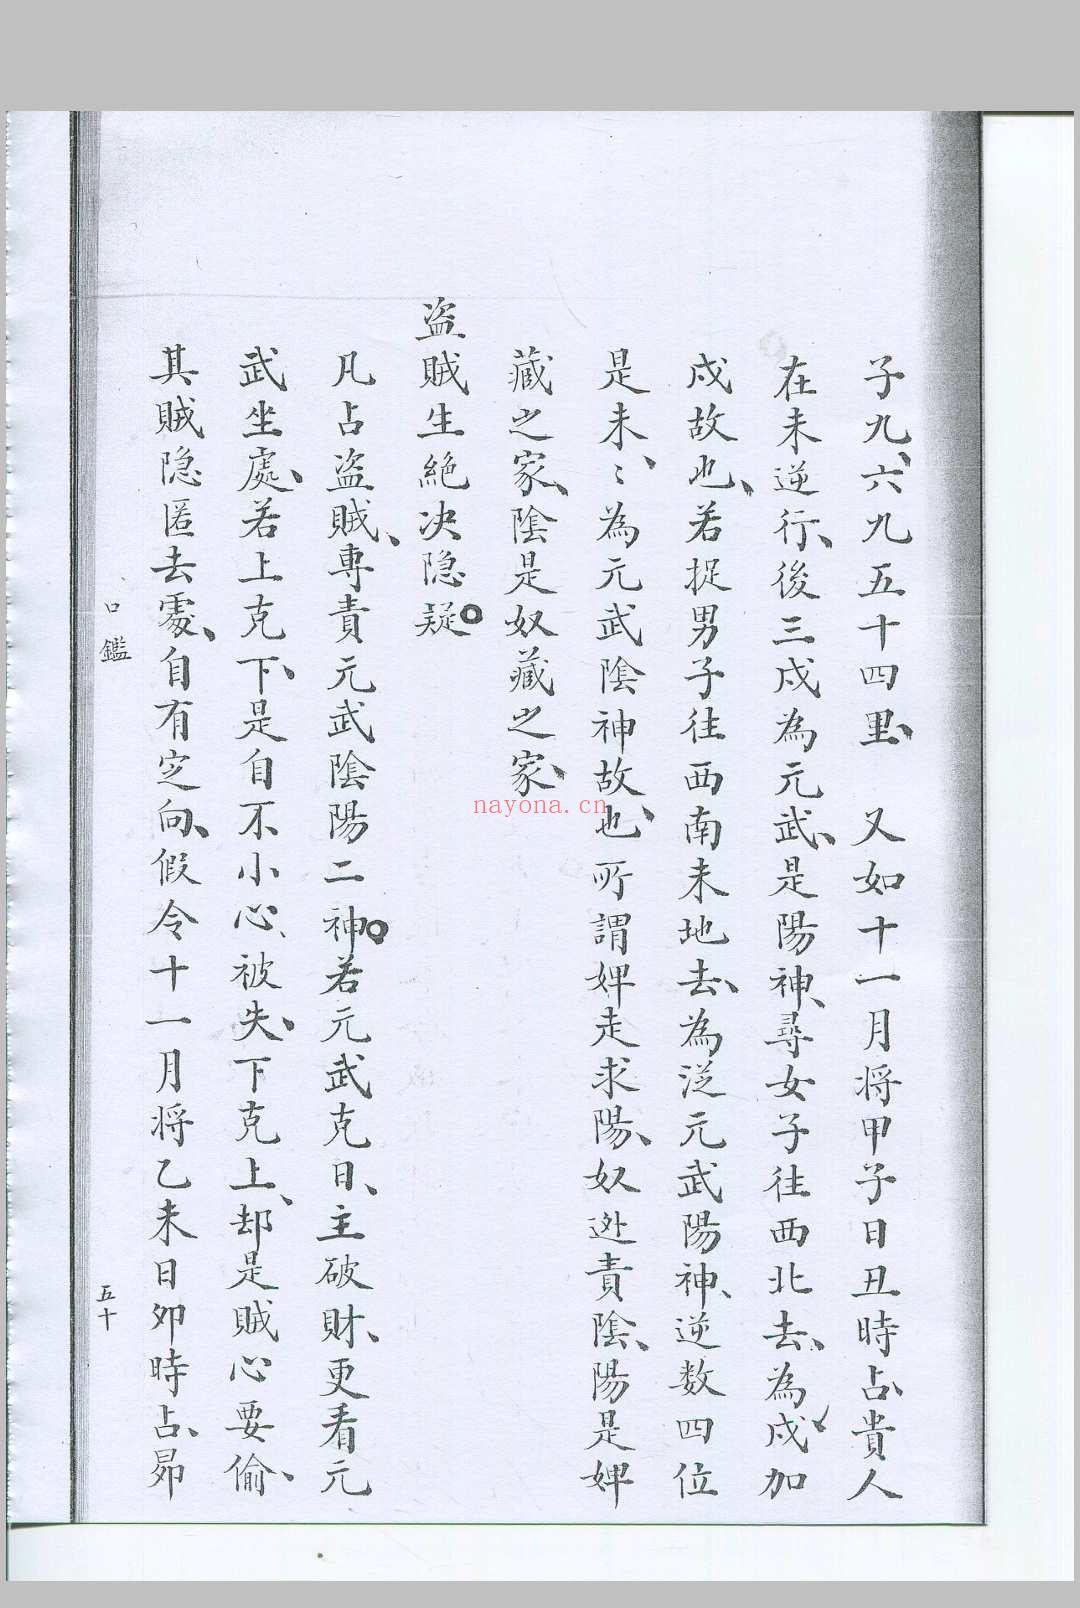 子九、六九五十四里、　又如十一月将甲子日丑時占、貴人
在未逆行、後三戍為元武、是陽神、尋女子往西北去、為戍加
戍故也、若捉男子往西南未地去、為従元武陽神、逆数四位
是未、〻為元武陰神故也、所謂婢走求陽、奴迯責陰、陽是婢
藏之家、陰是奴藏之家、
盗賊生絕决隐疑。
凡占盗賊、專責元武陰陽二神。若元武克日、主破財、更看元
武坐處、若上克下、是自不小心、被失、下克上、却是賊心要偷、
其賊隐匿去處、自有定向、假令十一月将乙未日夘時占、昴
口鑑
五十
nayona.cn